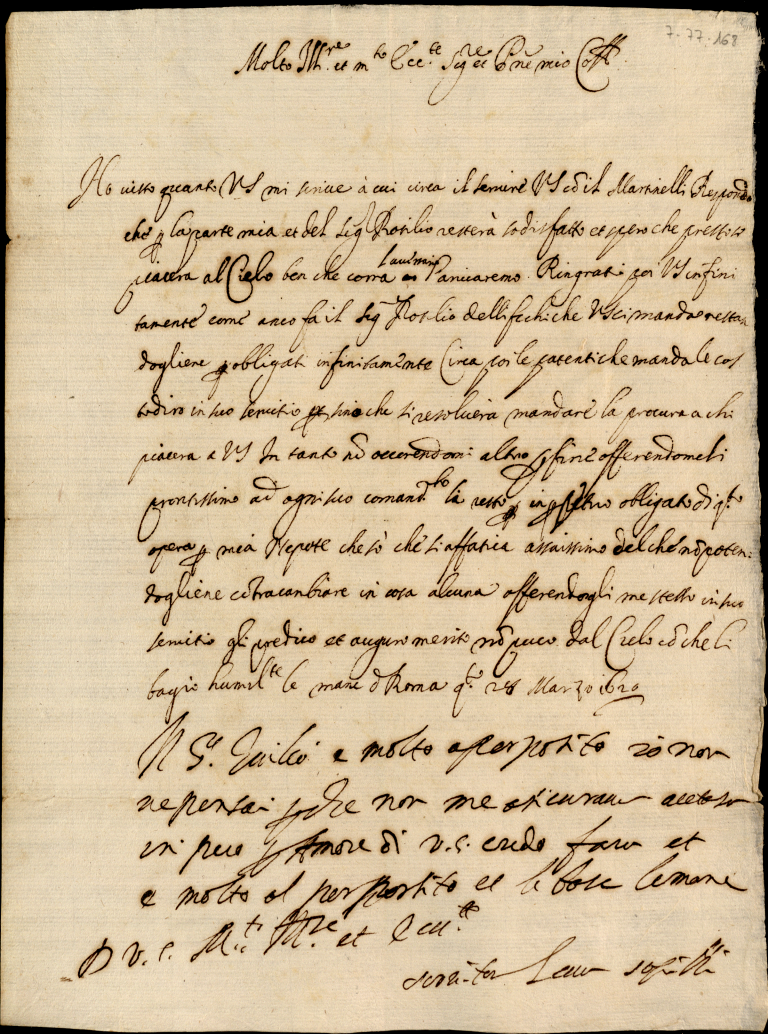 7·77·168
Molto Ill.re et m.to Ecc.te Sig.re et P.ne mio Coll.
Ho visto quanto VS mi scrive à cui circa il servire VS cō il Martinelli Respondo
che p la parte mia et del Sig. Rosilio resterà sodisfatto et spero che presto
piacera al Cielo ben che corra l'avversario Panicaremo. Ringratio poi VS infini
tamente come anco fa il Sig. Rosilio delli fichi che VS ci manda restan
dogliene p obligati infinitamente Circa poi le patenti che manda le cos
todiro in suo servitio sino che si resolverà mandare la procura a chi
piacera a VS In tanto nō occorrendomi altro p fine offerendomeli
prontissimo ad ogni suo comand.to la resto in perpetuo obligato di q.ta
opera p mia Nepote che sò che si affatica assaissimo del che nō poten
dogliene cōtracambiare in cosa alcuna offerendogli me stesso in suo
servitio gli predico et auguro merito nō puoco dal Cielo cō che li
bagio humil.te le mane d Roma q.o 28 Marzo 1620
Il S.r e molto a per posito io non
ne pensai che non me asicurava
in p Amore di v.s. credo faro et
e molto al per posito et le bace le mane
D V.S. M.to Ill.re et Ecc.te
servitor